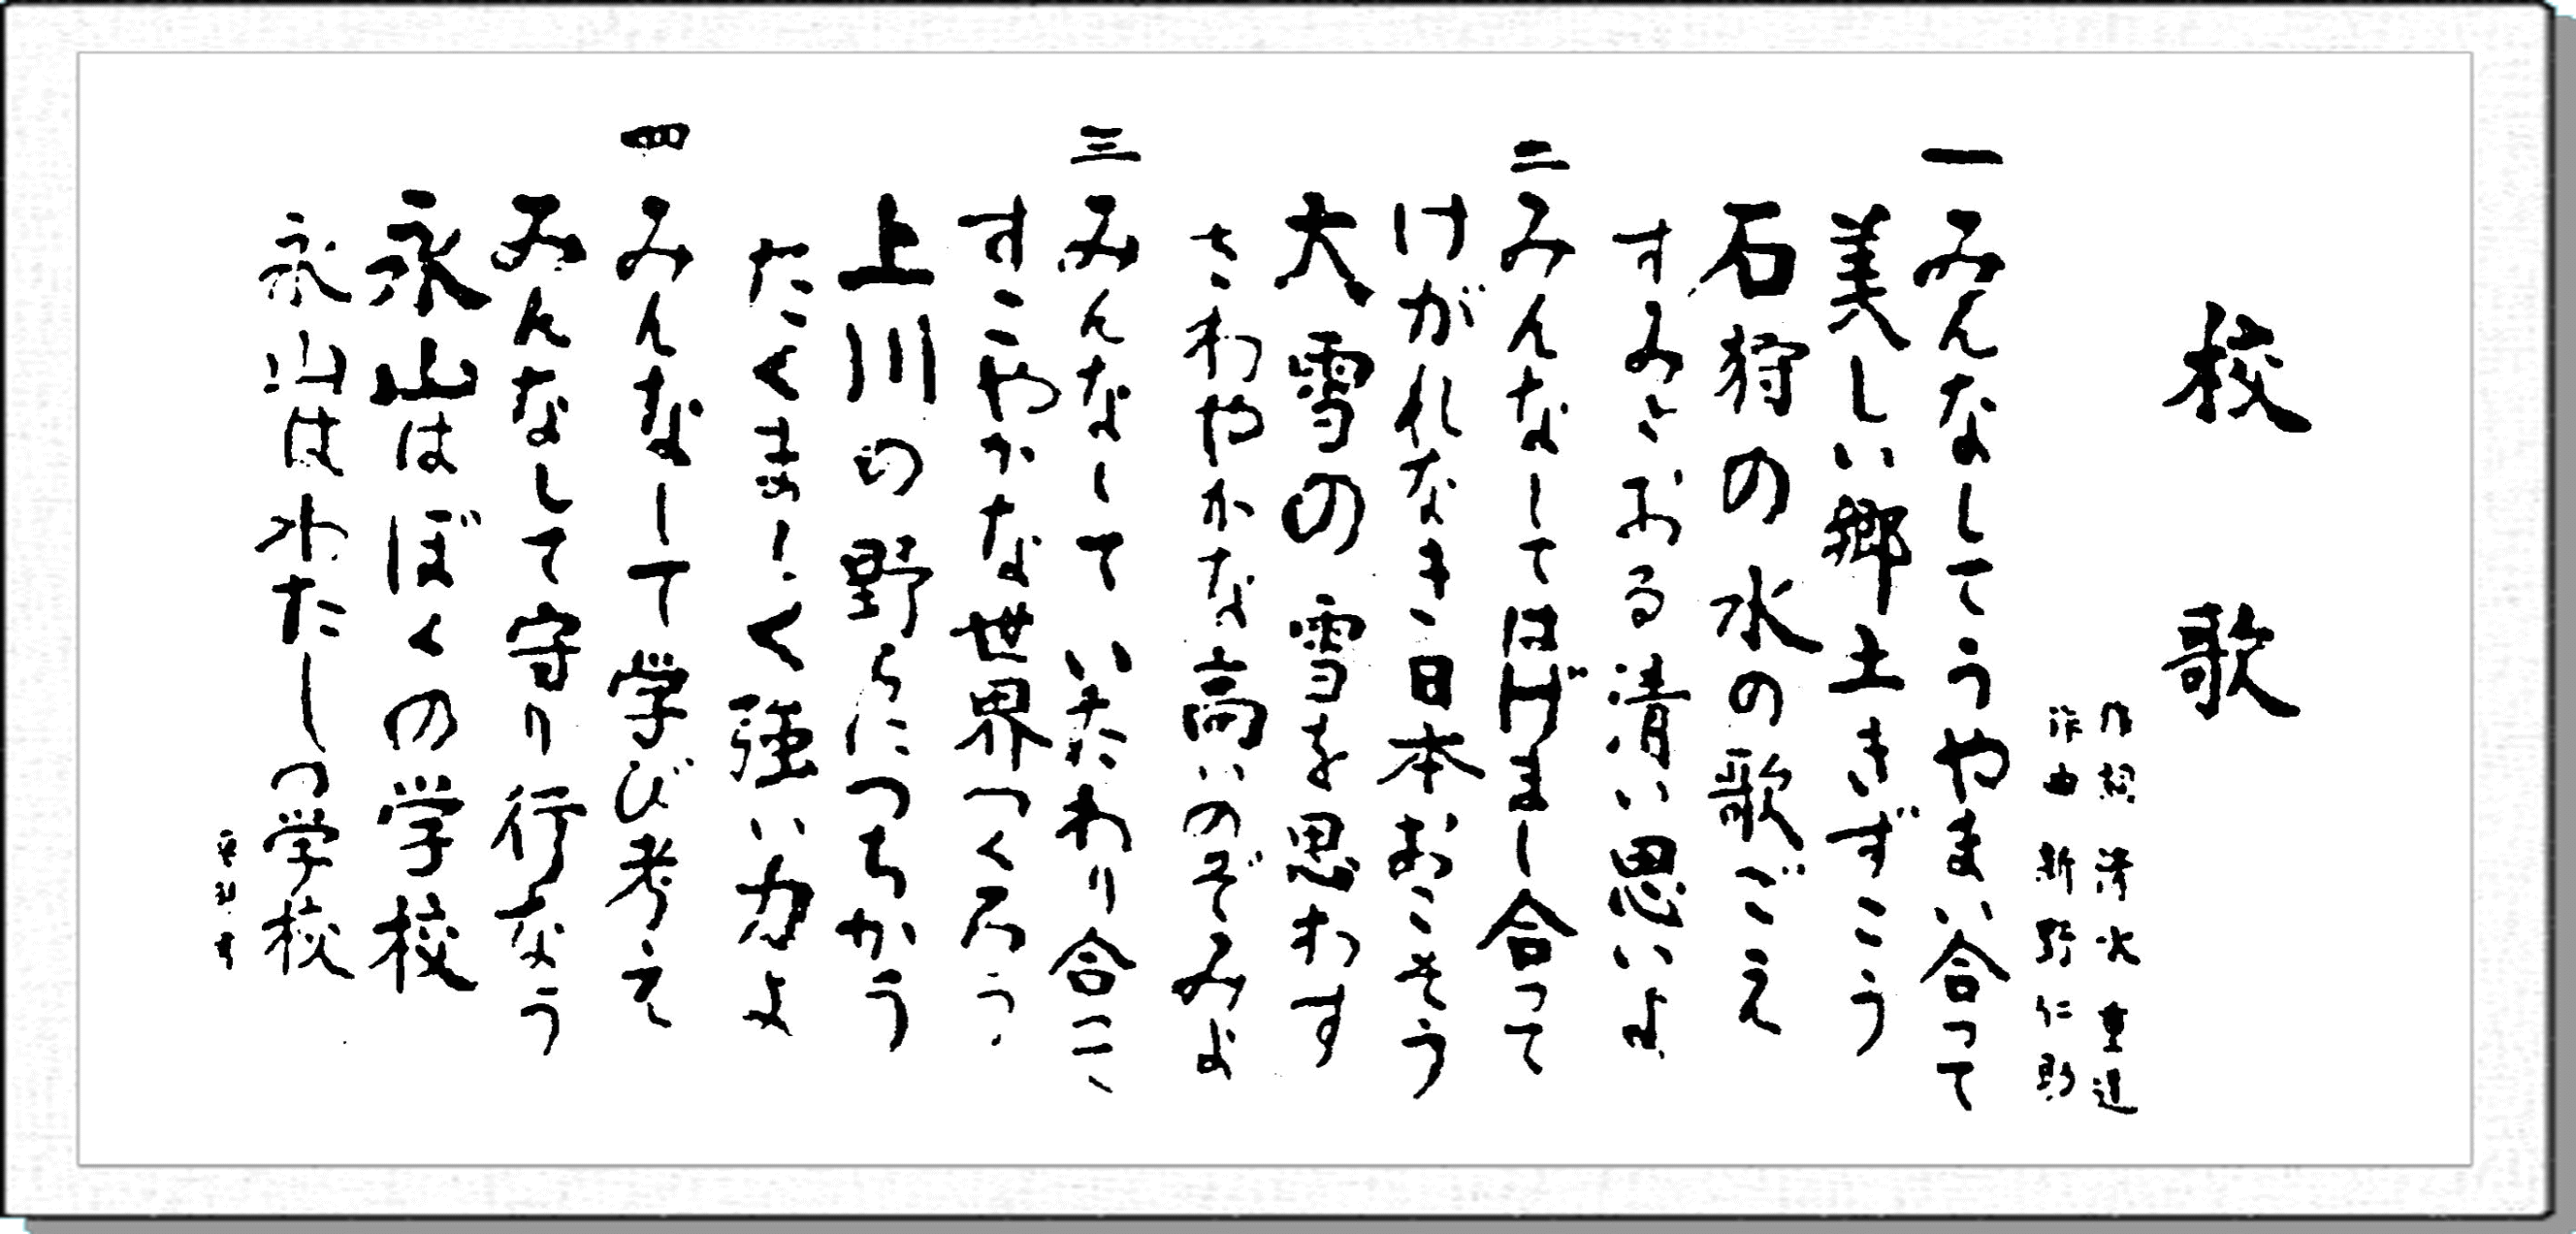 校歌
作詞 清水重道
作曲 新野仁
一 みんなしてうやまい合って
美しい郷土きずこう
石狩の水の歌ごえ
すみとおる清い思いよ
二 みんなしてはげまし合って
けがれなき日本おこそう
大雪の雪を思わす
さわやかな高いのぞみよ
三 みんなして いたわり合って
すこやかな世界つくろう
上川の野らにつちかう
たくましく強い力よ
四 みんなして学び考え
みんなして守り行なう
永山はぼくの学校
永山はわたしの学校